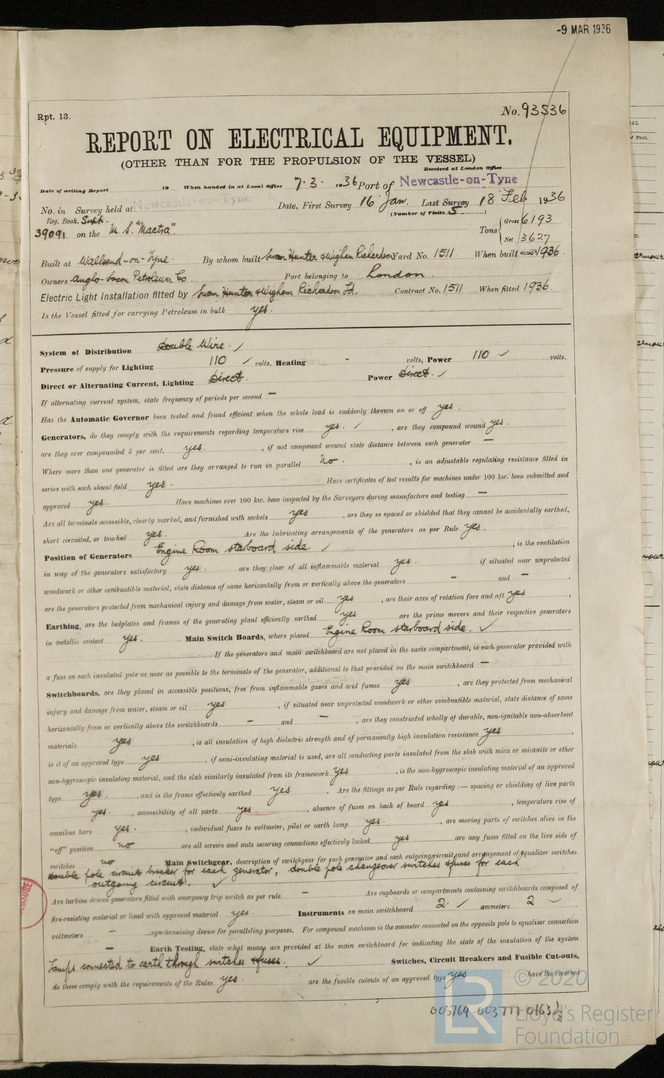 -9 MAR 1936
Rpt. 13.
No. 93536
REPORT ON ELECTRICAL EQUIPMENT.
(OTHER THAN FOR THE PROPULSION OF THE VESSEL)
Received at London Office
Date of writing Report 19 When handed in at Local Office 7.3. 1936 Port of Newcastle-on-Tyne
No. in Survey held at Newcastle-on-Tyne Date, First Survey 16 Jan. Last Survey 18 Feb 1936
Reg. Book. Supt. (Number of Visits 5.)
39091 on the M.S. "Mactra" Tons { Gross 6193
Net 3627
Built at Wallsend-on-Tyne By whom built Swan Hunter & Wigham Richardson Yard No. 1511 When built 1936
Owners Anglo-Saxon Petroleum Co Port belonging to London
Electric Light Installation fitted by Swan Hunter & Wigham Richardson Ld. Contract No. 1511 When fitted 1936.
Is the Vessel fitted for carrying Petroleum in bulk yes.
System of Distribution Double Wire. ✓
Pressure of supply for Lighting 110 ✓ volts, Heating - volts, Power 110 ✓ volts.
Direct or Alternating Current, Lighting Direct. Power Direct. ✓
If alternating current system, state frequency of periods per second —
Has the Automatic Governor been tested and found efficient when the whole load is suddenly thrown on or off yes.
Generators, do they comply with the requirements regarding temperature rise yes. ✓ , are they compound wound yes.
are they over compounded 5 per cent. yes. , if not compound wound state distance between each generator —
Where more than one generator is fitted are they arranged to run in parallel no. , is an adjustable regulating resistance fitted in
series with each shunt field yes. Have certificates of test results for machines under 100 kw. been submitted and
approved yes. Have machines over 100 kw. been inspected by the Surveyors during manufacture and testing —
Are all terminals accessible, clearly marked, and furnished with sockets yes , are they so spaced or shielded that they cannot be accidentally earthed,
short circuited, or touched yes. Are the lubricating arrangements of the generators as per Rule yes.
Position of Generators Engine Room starboard side. ✓ , is the ventilation
in way of the generators satisfactory yes. are they clear of all inflammable material yes. if situated near unprotected
woodwork or other combustible material, state distance of same horizontally from or vertically above the generators - and - ,
are the generators protected from mechanical injury and damage from water, steam or oil yes , are their axes of rotation fore and aft yes
Earthing, are the bedplates and frames of the generating plant efficiently earthed yes are the prime movers and their respective generators
in metallic contact yes. Main Switch Boards, where placed Engine Room starboard side. ✓
If the generators and main switchboard are not placed in the same compartment, is each generator provided with
a fuse on each insulated pole as near as possible to the terminals of the generator, additional to that provided on the main switchboard —
Switchboards, are they placed in accessible positions, free from inflammable gases and acid fumes yes , are they protected from mechanical
injury and damage from water, steam or oil yes , if situated near unprotected woodwork or other combustible material, state distance of same
horizontally from or vertically above the switchboards - and - , are they constructed wholly of durable, non-ignitable non-absorbent
materials yes , is all insulation of high dielectric strength and of permanently high insulation resistance yes ,
is it of an approved type yes , if semi-insulating material is used, are all conducting parts insulated from the slab with mica or micanite or other
non-hygroscopic insulating material, and the slab similarly insulated from its framework yes , is the non-hygroscopic insulating material of an approved
type yes. , and is the frame effectively earthed yes . Are the fittings as per Rule regarding :— spacing or shielding of live parts
yes. , accessibility of all parts yes. , absence of fuses on back of board yes , temperature rise of
omnibus bars yes. , individual fuses to voltmeter, pilot or earth lamp yes. , are moving parts of switches alive in the
"off" position no are all screws and nuts securing connections effectively locked yes are any fuses fitted on the live side of
switches no Main Switchgear, description of switchgear for each generator and each outgoing circuit and arrangement of equalizer switches
double pole circuit breaker for each generator, double pole changeover switches & fuses for each
outgoing circuit. ✓
Are turbine driven generators fitted with emergency trip switch as per rule - Are cupboards or compartments containing switchboards composed of
fire-resisting material or lined with approved material yes. Instruments on main switchboard 2 ✓ ammeters 2 -
voltmeters - synchronising device for paralleling purposes. For compound machines is the ammeter connected on the opposite pole to equaliser connection
- Earth Testing, state what means are provided at the main switchboard for indicating the state of the insulation of the system
Lamps connected to earth through switches & fuses. ✓ Switches, Circuit Breakers and Fusible Cut-outs,
do these comply with the requirements of the Rules yes are the fusible cutouts of an approved type yes have the reversed
© 2020
Lloyd's Register
Foundation
LR